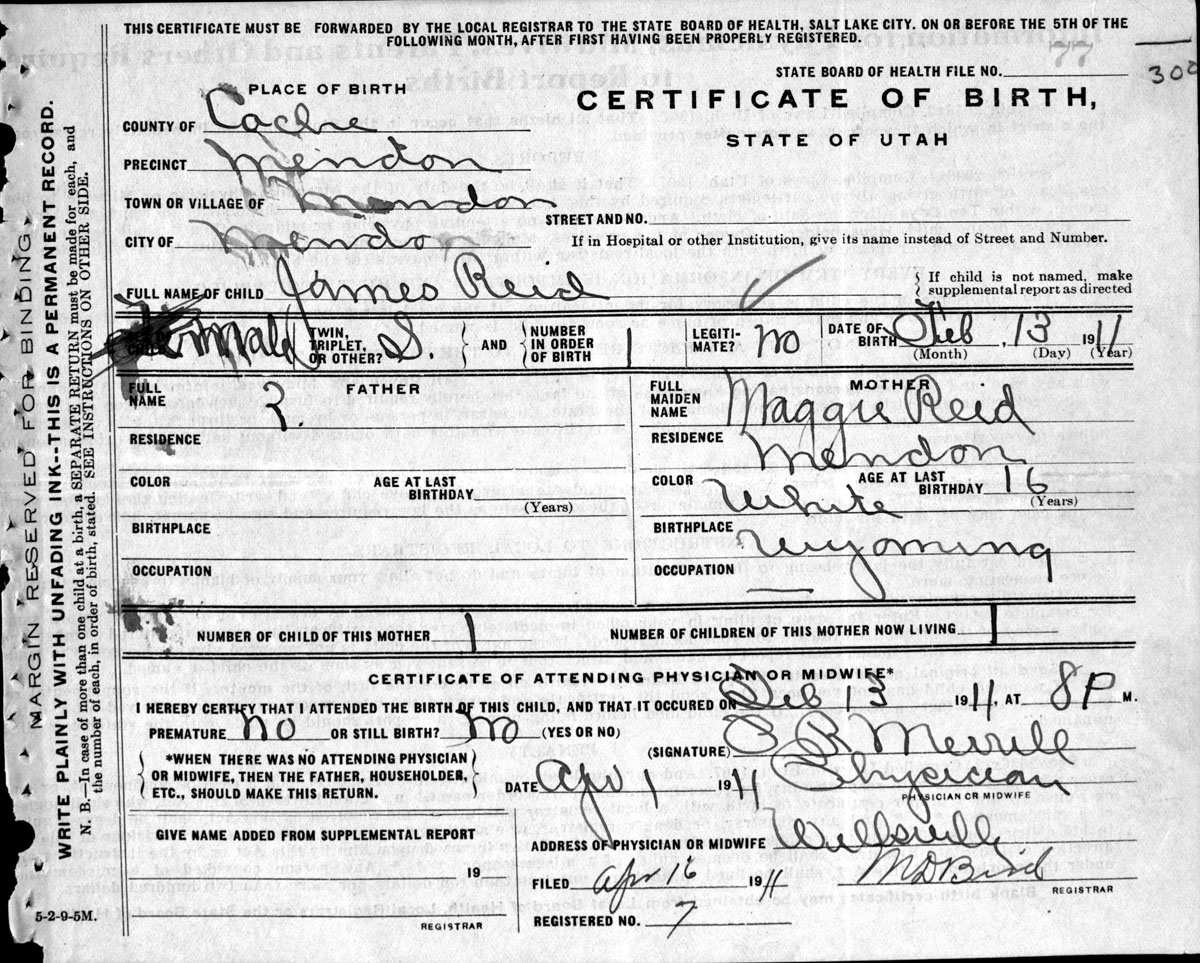 THIS CERTIFICATE MUST BE FORWARDED BY THE LOCAL REGISTRAR TO THE STATE BOARD OF HEALTH, SALT LAKE CITY. ON OR BEFORE THE 5TH OF THE
FOLLOWING MONTH, AFTER FIRST HAVING BEEN PROPERLY REGISTERED.
77
300
STATE BOARD OF HEALTH FILE NO.
PLACE OF BIRTH
CERTIFICATE OF BIRTH,
STATE OF UTAH
COUNTY OF Cache
PRECINCT Mendon
TOWN OR VILLAGE OF Mendon
STREET AND NO.
CITY OF Mendon
If in Hospital or other Institution, give its name instead of Street and Number.
FULL NAME OF CHILD James Reid
If child is not named, make
supplemental report as directed
male TWIN, TRIPLET, OR OTHER? S. AND NUMBER IN ORDER OF BIRTH LEGITI-MATE? no DATE OF BIRTH Feb, 13 1911
(Month) (Day) (Year)
FULL NAME FATHER ?
FULL MAIDEN NAME MOTHER Maggie Reid
RESIDENCE
RESIDENCE Mendon
COLOR AGE AT LAST BIRTHDAY (Years)
COLOR White AGE AT LAST BIRTHDAY 16 (Years)
BIRTHPLACE
BIRTHPLACE Wyoming
OCCUPATION
OCCUPATION —
NUMBER OF CHILD OF THIS MOTHER 1 NUMBER OF CHILDREN OF THIS MOTHER NOW LIVING 1
CERTIFICATE OF ATTENDING PHYSICIAN OR MIDWIFE*
I HEREBY CERTIFY THAT I ATTENDED THE BIRTH OF THIS CHILD, AND THAT IT OCCURED ON Feb 13 1911, AT 8 P M.
PREMATURE No OR STILL BIRTH? No (YES OR NO)
(SIGNATURE) Merrill
*WHEN THERE WAS NO ATTENDING PHYSICIAN
OR MIDWIFE, THEN THE FATHER, HOUSEHOLDER,
ETC., SHOULD MAKE THIS RETURN.
DATE Apr 1 1911 Physician
PHYSICIAN OR MIDWIFE
GIVE NAME ADDED FROM SUPPLEMENTAL REPORT
ADDRESS OF PHYSICIAN OR MIDWIFE Wellsville
19
FILED Apr 16 1911 Bird
REGISTRAR
REGISTERED NO. 7
5-2-9-5M.
REGISTRAR
MARGIN RESERVED FOR BINDING
WRITE PLAINLY WITH UNFADING INK--THIS IS A PERMANENT RECORD.
N. B. In case of more than one child at a birth, a SEPARATE RETURN must be made for each, and
the number of each, in order of birth, stated. SEE INSTRUCTIONS ON OTHER SIDE.